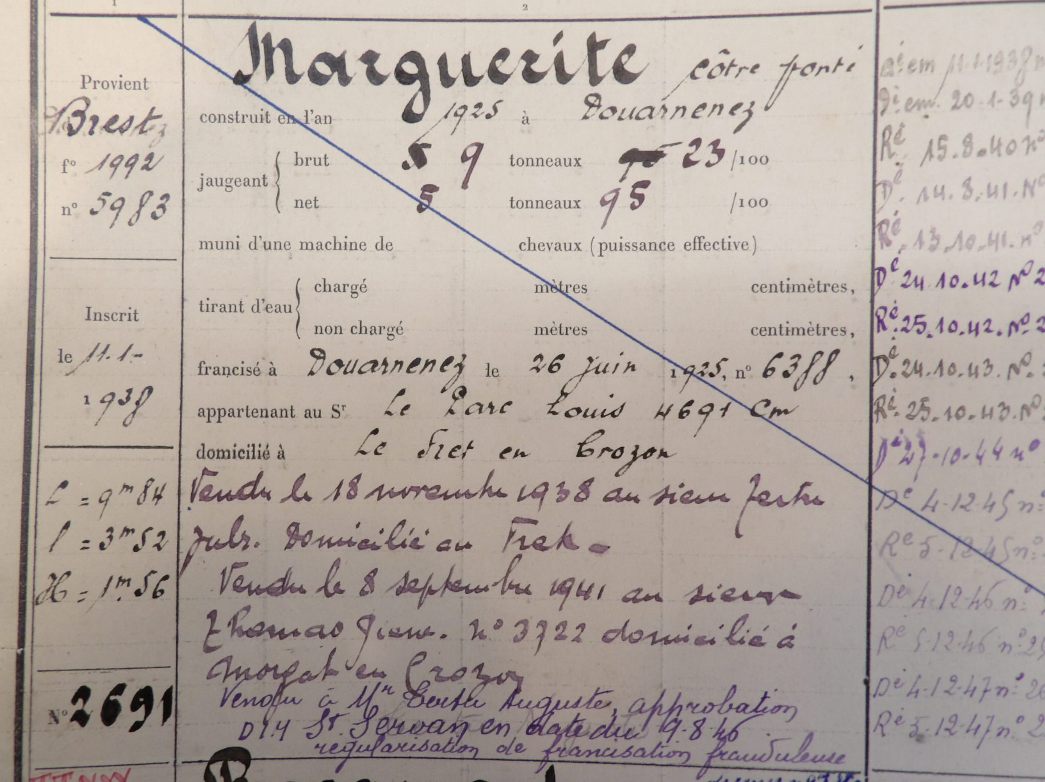 1
2
Provient
Brest
f° 1992
n° 5983
Inscrit
le 11.1-
1938
L = 9m84
l = 3m52
H = 1m.56
N° 2691
Marguerite côtre ponté
construit en l'an 1925 à Douarnenez
jaugeant brut 9 tonneaux 23/100
net 5 tonneaux 95 /100
muni d'une machine de chevaux (puissance effective)
tirant d'eau chargé mètres centimètres,
non chargé mètres centimètres,
francisé à Douarnenez le 26 juin 1925, n° 6388,
appartenant au Sr Le Parc Louis 4691 Cm
domicilié à Le Fret en Crozon
Vendu le 18 novembre 1938 au sieur
Domicilié au Fret -
Vendu le 8 septembre 1941 au sieur
Thomas n° 3722 domicilié à
Morgat en Crozon
Vendu à Mr Auguste, approbation
St Servan en date du 9.8.46
régularisation de francisation frauduleuse
11.1.1938 n
20.1-39 n
Ré 15.8.40 n°
Dé. 14.8.41. N°
Ré. 13.10.41. n°
Dé 24.10.42 N° 2
Ré. 25.10.42. N° 2
Dé. 24.10.43. N°
Ré. 25.10.43. N°
Dé 27.10.44 n°
Dé 4.12.45 n°
Ré 5.12.45 n°
Dé 4.12.46 n°
Ré 5.12.46 n° 2
Dé 4.12.47 n° 2
Ré 5.12.47 n° 2